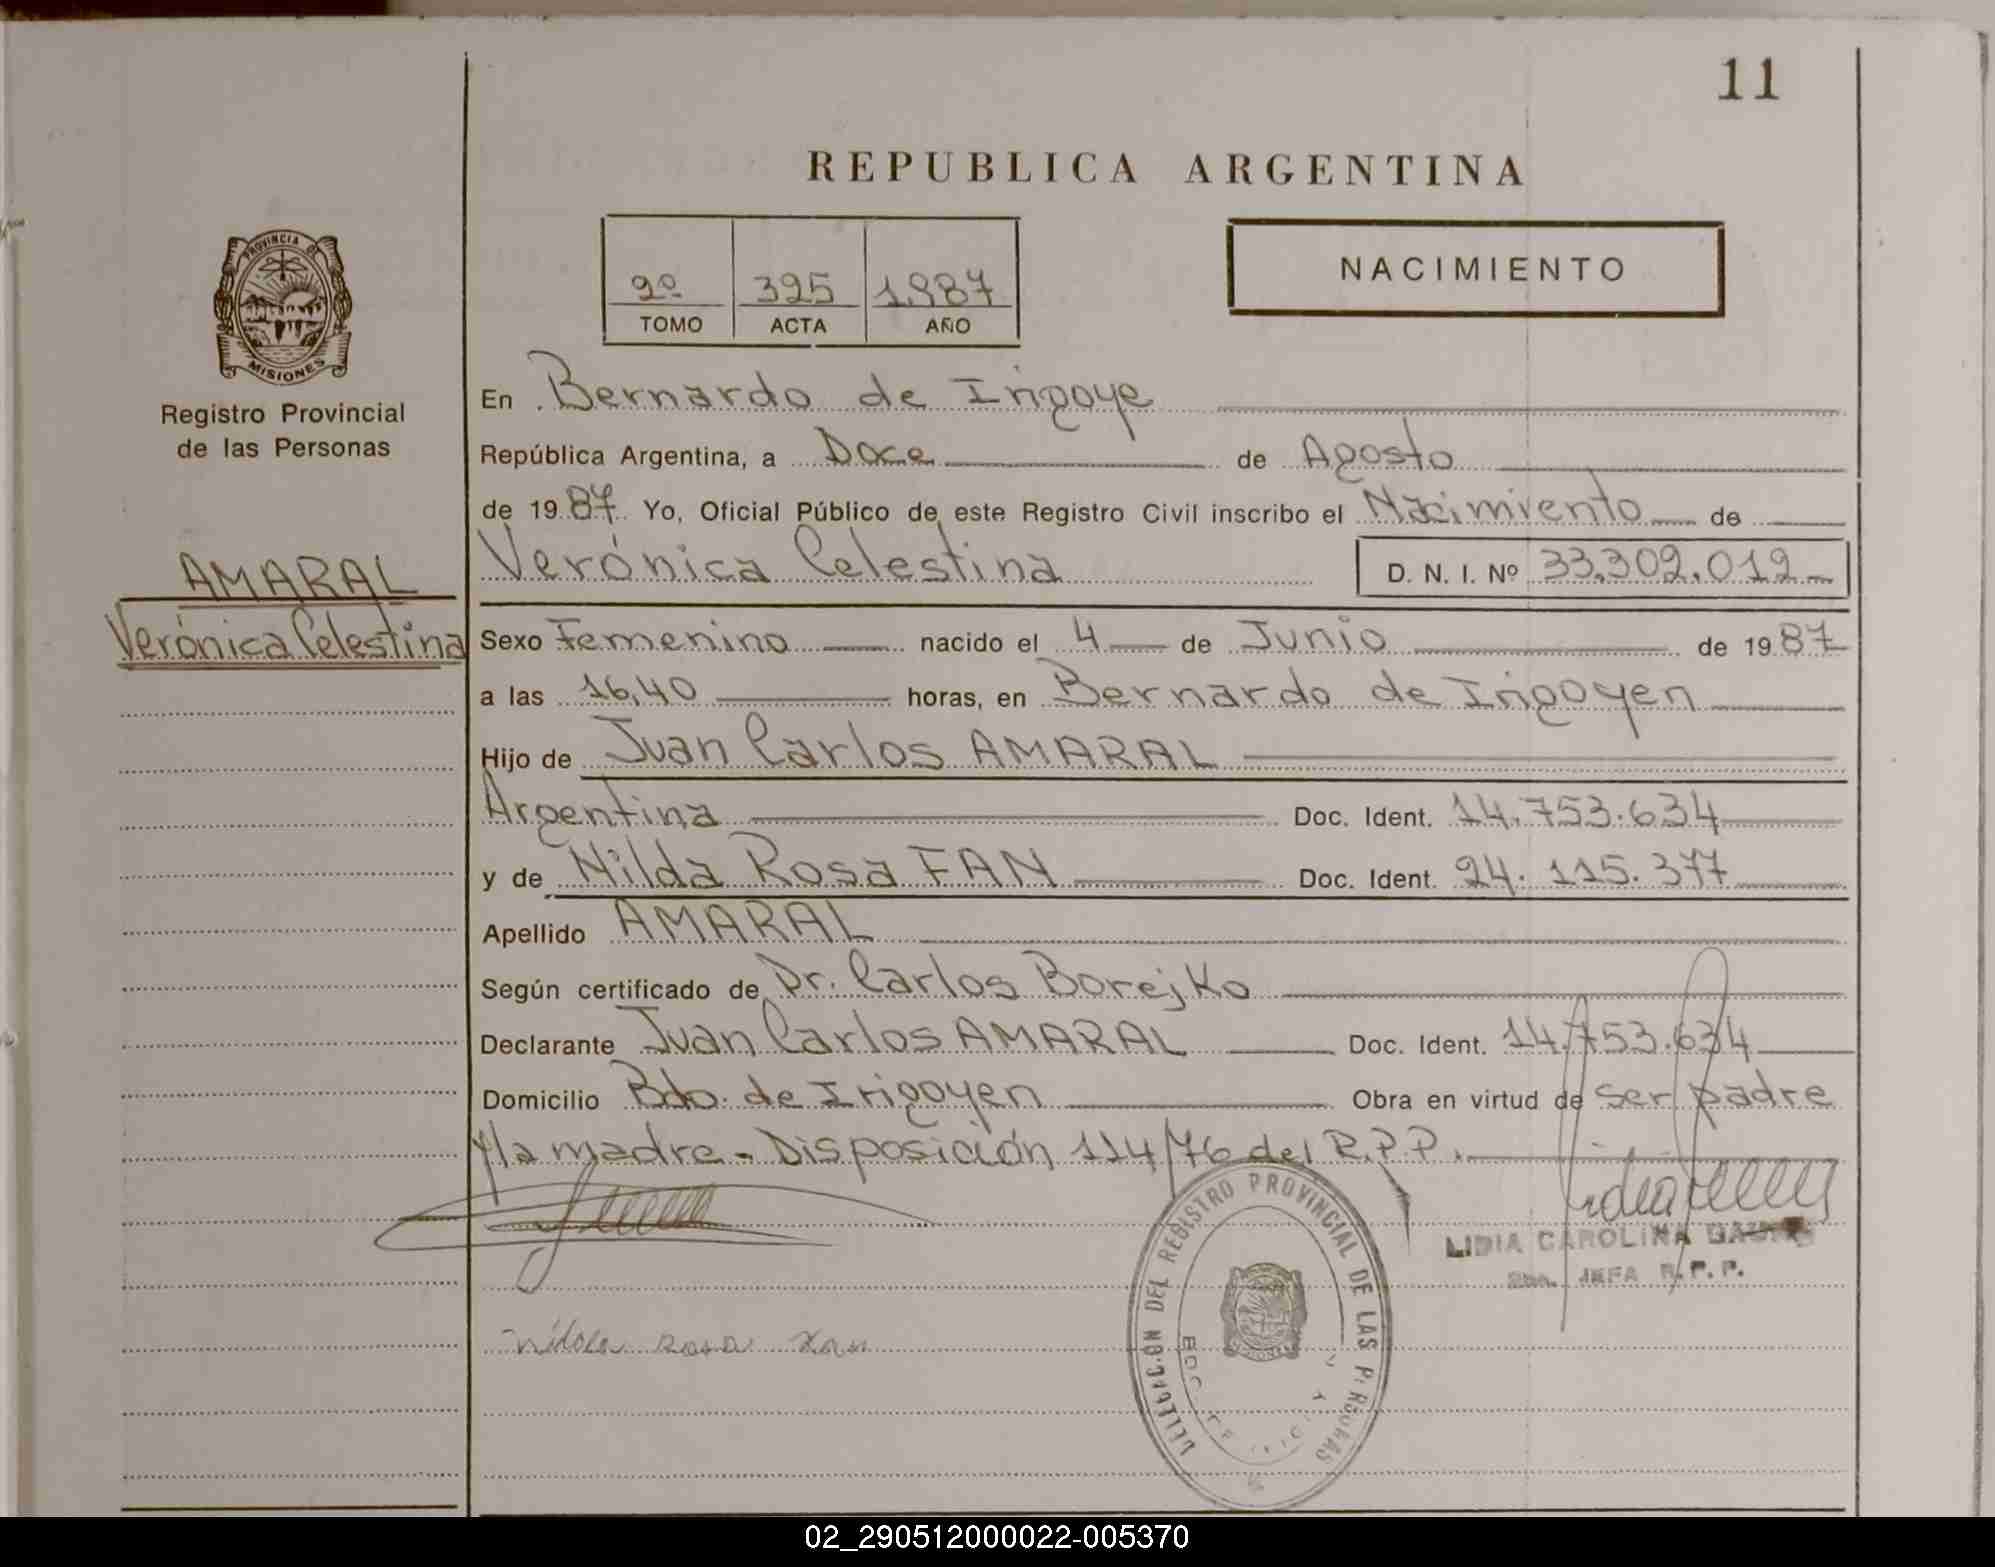 11
REPUBLICA ARGENTINA
PROVINCIA DE
MISIONES
Registro Provincial
de las Personas
2º 325 1.987
TOMO ACTA AÑO
NACIMIENTO
En Bernardo de Irigoye
República Argentina, a Doce de Agosto
de 1987 Yo, Oficial Público de este Registro Civil inscribo el Nacimiento de
AMARAL
Verónica Celestina
Verónica Celestina D. N. I. Nº 33.302.012
Sexo Femenino nacido el 4 de Junio de 1987
a las 16,40 horas, en Bernardo de Irigoyen
Hijo de Juan Carlos AMARAL
Argentina Doc. Ident. 14.753.634
y de Nilda Rosa FAN Doc. Ident. 24.115.377
Apellido AMARAL
Según certificado de Dr. Carlos Borejko
Declarante Juan Carlos AMARAL Doc. Ident. 14.753.634
Domicilio Bdo. de Irigoyen Obra en virtud de ser padre
y la madre - Disposición 114/76 del R.P.P.
LIDIA CAROLINA
JEFA R. P. P.
DELEGACION DEL REGISTRO PROVINCIAL DE LAS PERSONAS
nilda rosa fan
02_290512000022-005370